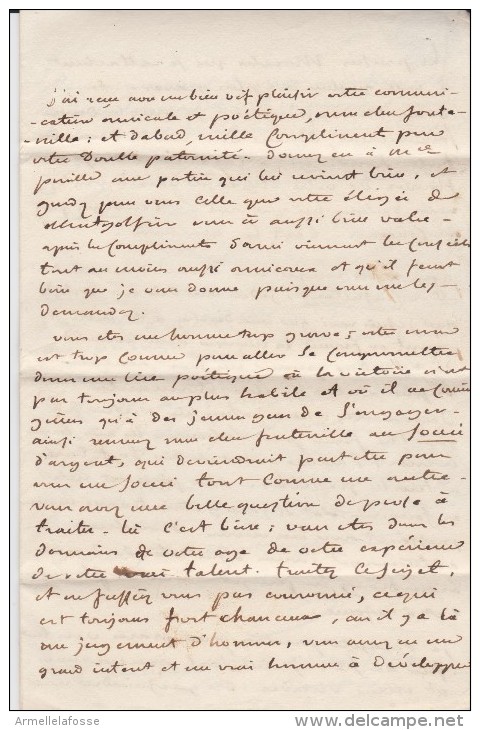 j'ai reçu avec un bien vif plaisir votre communi-
cation amicale et poétique, mon cher fonte-
-nille ; et d'abord, mille compliments pour
votre Double paternité. Donnez en à Mde
une partie qui lui revient bien, et
gardez pour vous celle que votre élégie de
vous a aussi bien value.
après les compliments d'ami viennent les conseils
tout au moins aussi amicaux et qu'il faut
bien que je vous donne puisque vous me les
Demandez.
vous etes un homme trop grave ; votre nom
est trop connu pour aller se compromettre
dans une lice poétique où la victoire n'est
pas toujours au plus habile et où il ne convient
qu'à des jeunes gens de s'engager.
ainsi renvoyez mon cher fontenille au souci
d'argent, qui deviendrait peut etre pour
vous un souci tout comme un autre.
vous avez une belle question de prose à
traiter. là c'est bien ; vous etes dans les
domaines de votre age de votre expérience
de votre vrai talent. traitez ce sujet,
et ne fussiez vous pas couronné, ce qui
est toujours fort chanceux, car il y a là
un jugement d'hommes, vous aurez eu un
grand interet et un vrai homme à Développer
Armellelafosse
www.delcampe.net